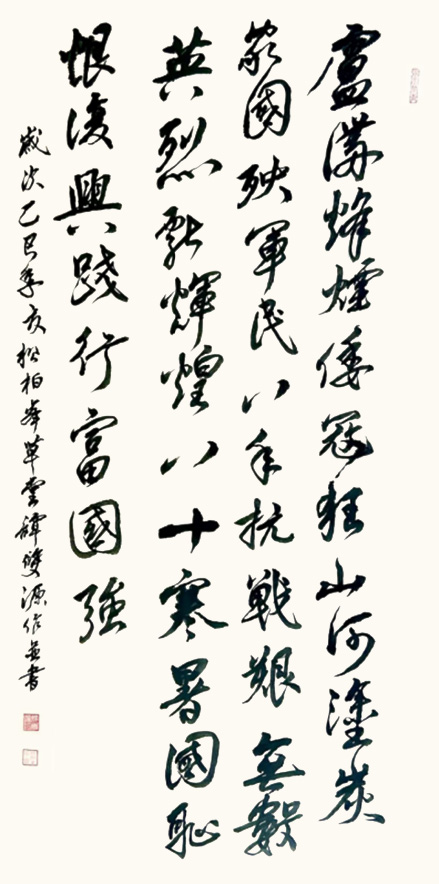 盧溝烽煙倭寇狂山河塗炭
家國殃軍民八年抗戦艱無數
英烈輝煌八十寒暑國恥
恨復興踐行富國強
歲次乙巳季夏松柏峯草堂韓雙源作並書